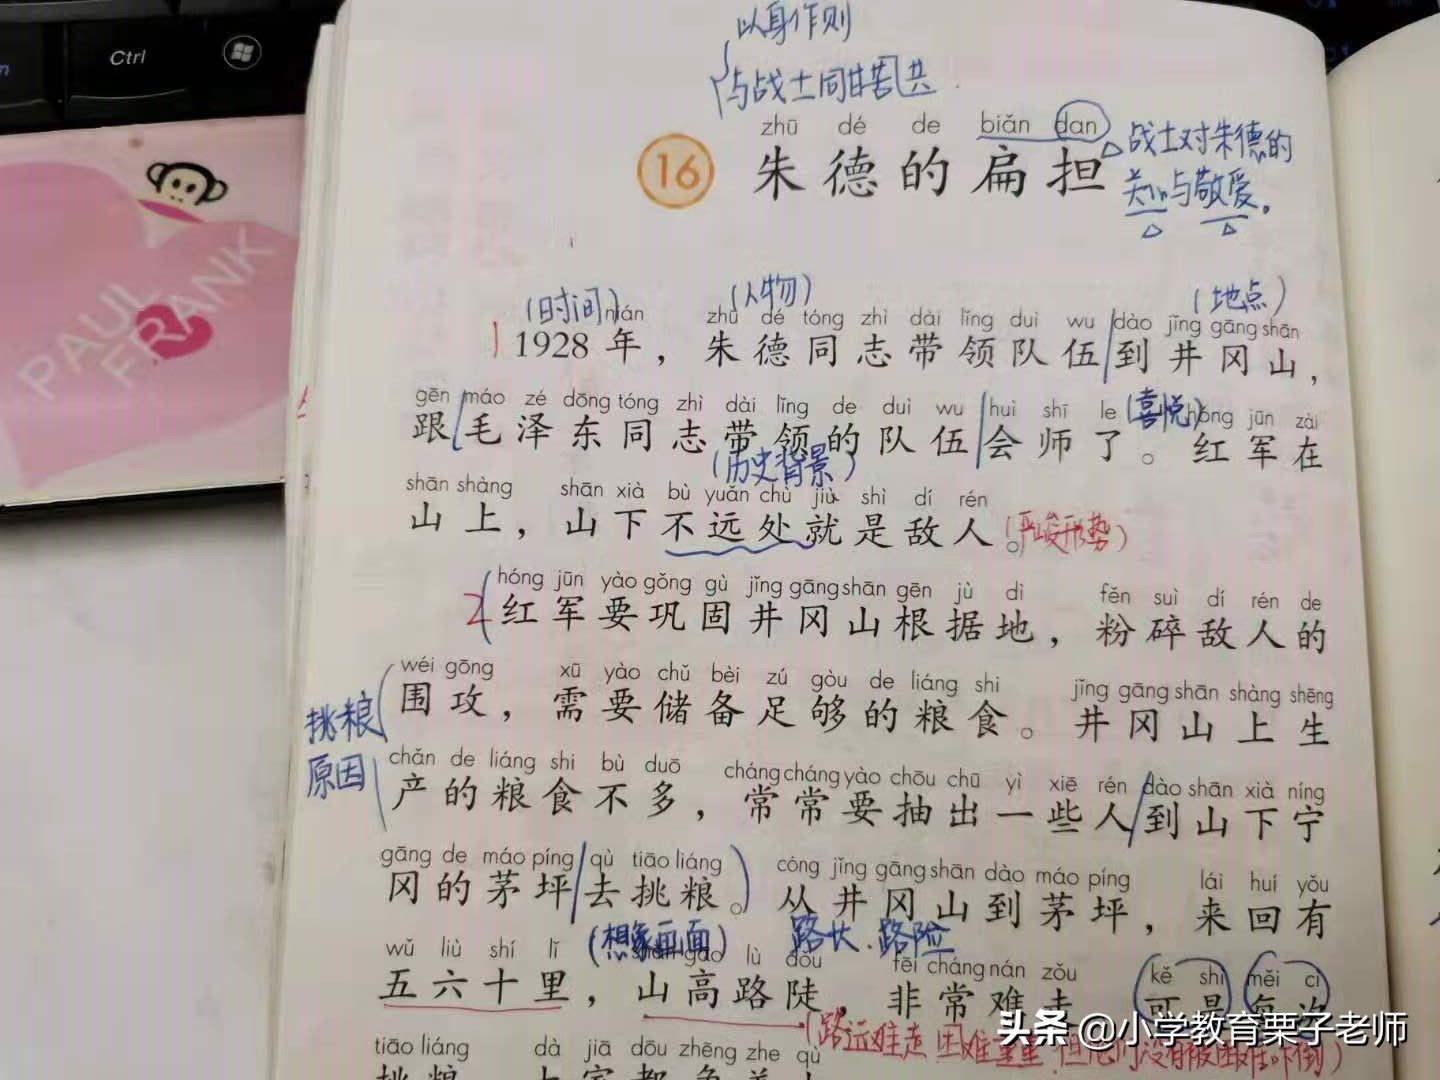 Ctrl
PAUL
FRANK
以身作则
与战士同甘苦共
zhū dé de biǎn dan
16 朱德的扁担
战士对朱德的
关心与敬爱。
(时间) (人物) (地点)
nián zhū dé tóng zhì dài lǐng duì wu dào jǐng gāng shān
1 1928年，朱德同志带领队伍到井冈山，
gēn máo zé dōng tóng zhì dài lǐng de duì wu huì shī le (喜悦) hóng jūn zài
跟毛泽东同志带领的队伍会师了。红军在
(历史背景)
shān shàng shān xià bù yuǎn chù jiù shì dí rén
山上，山下不远处就是敌人。(严峻形势)
hóng jūn yào gǒng gù jǐng gāng shān gēn jù dì fěn suì dí rén de
2 红军要巩固井冈山根据地，粉碎敌人的
wéi gōng xū yào chǔ bèi zú gòu de liáng shi jǐng gāng shān shàng shēng
围攻，需要储备足够的粮食。井冈山上生
挑粮
原因
chǎn de liáng shi bù duō cháng cháng yào chōu chū yì xiē rén dào shān xià níng
产的粮食不多，常常要抽出一些人到山下宁
gāng de máo píng qù tiāo liáng cóng jǐng gāng shān dào máo píng lái huí yǒu
冈的茅坪去挑粮。从井冈山到茅坪，来回有
(想象画面) 路长、路险
wǔ liù shí lǐ shān gāo lù dǒu fēi cháng nán zǒu kě shì měi cì
五六十里，山高路陡，非常难走。可是每次
(路远难走，困难重重，但他们没有被困难吓倒)
tiāo liáng dà jiā dōu zhēng zhe qù
挑粮，大家都争着去
头条 @小学教育栗子老师